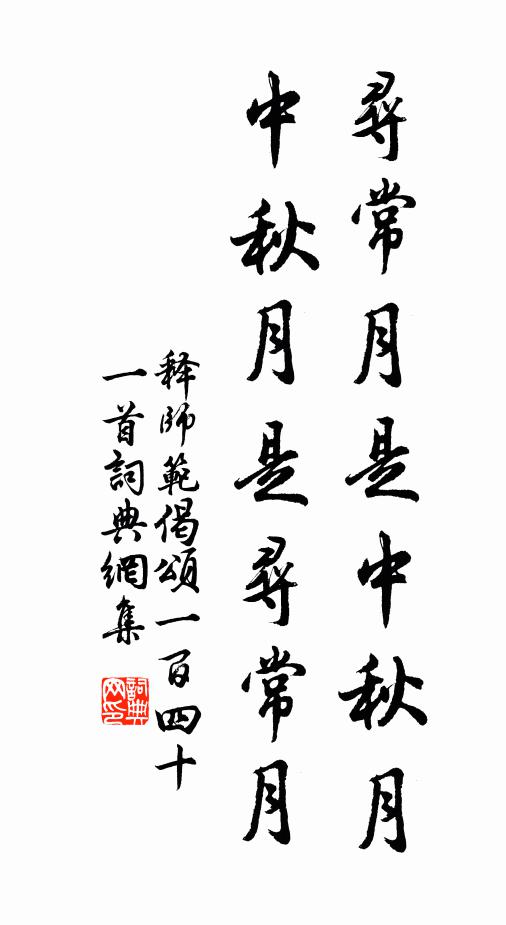 尋常月是中秋月
中秋月是尋常月
释師範偈頌一百四十
一首詞典網集
詞典
网印